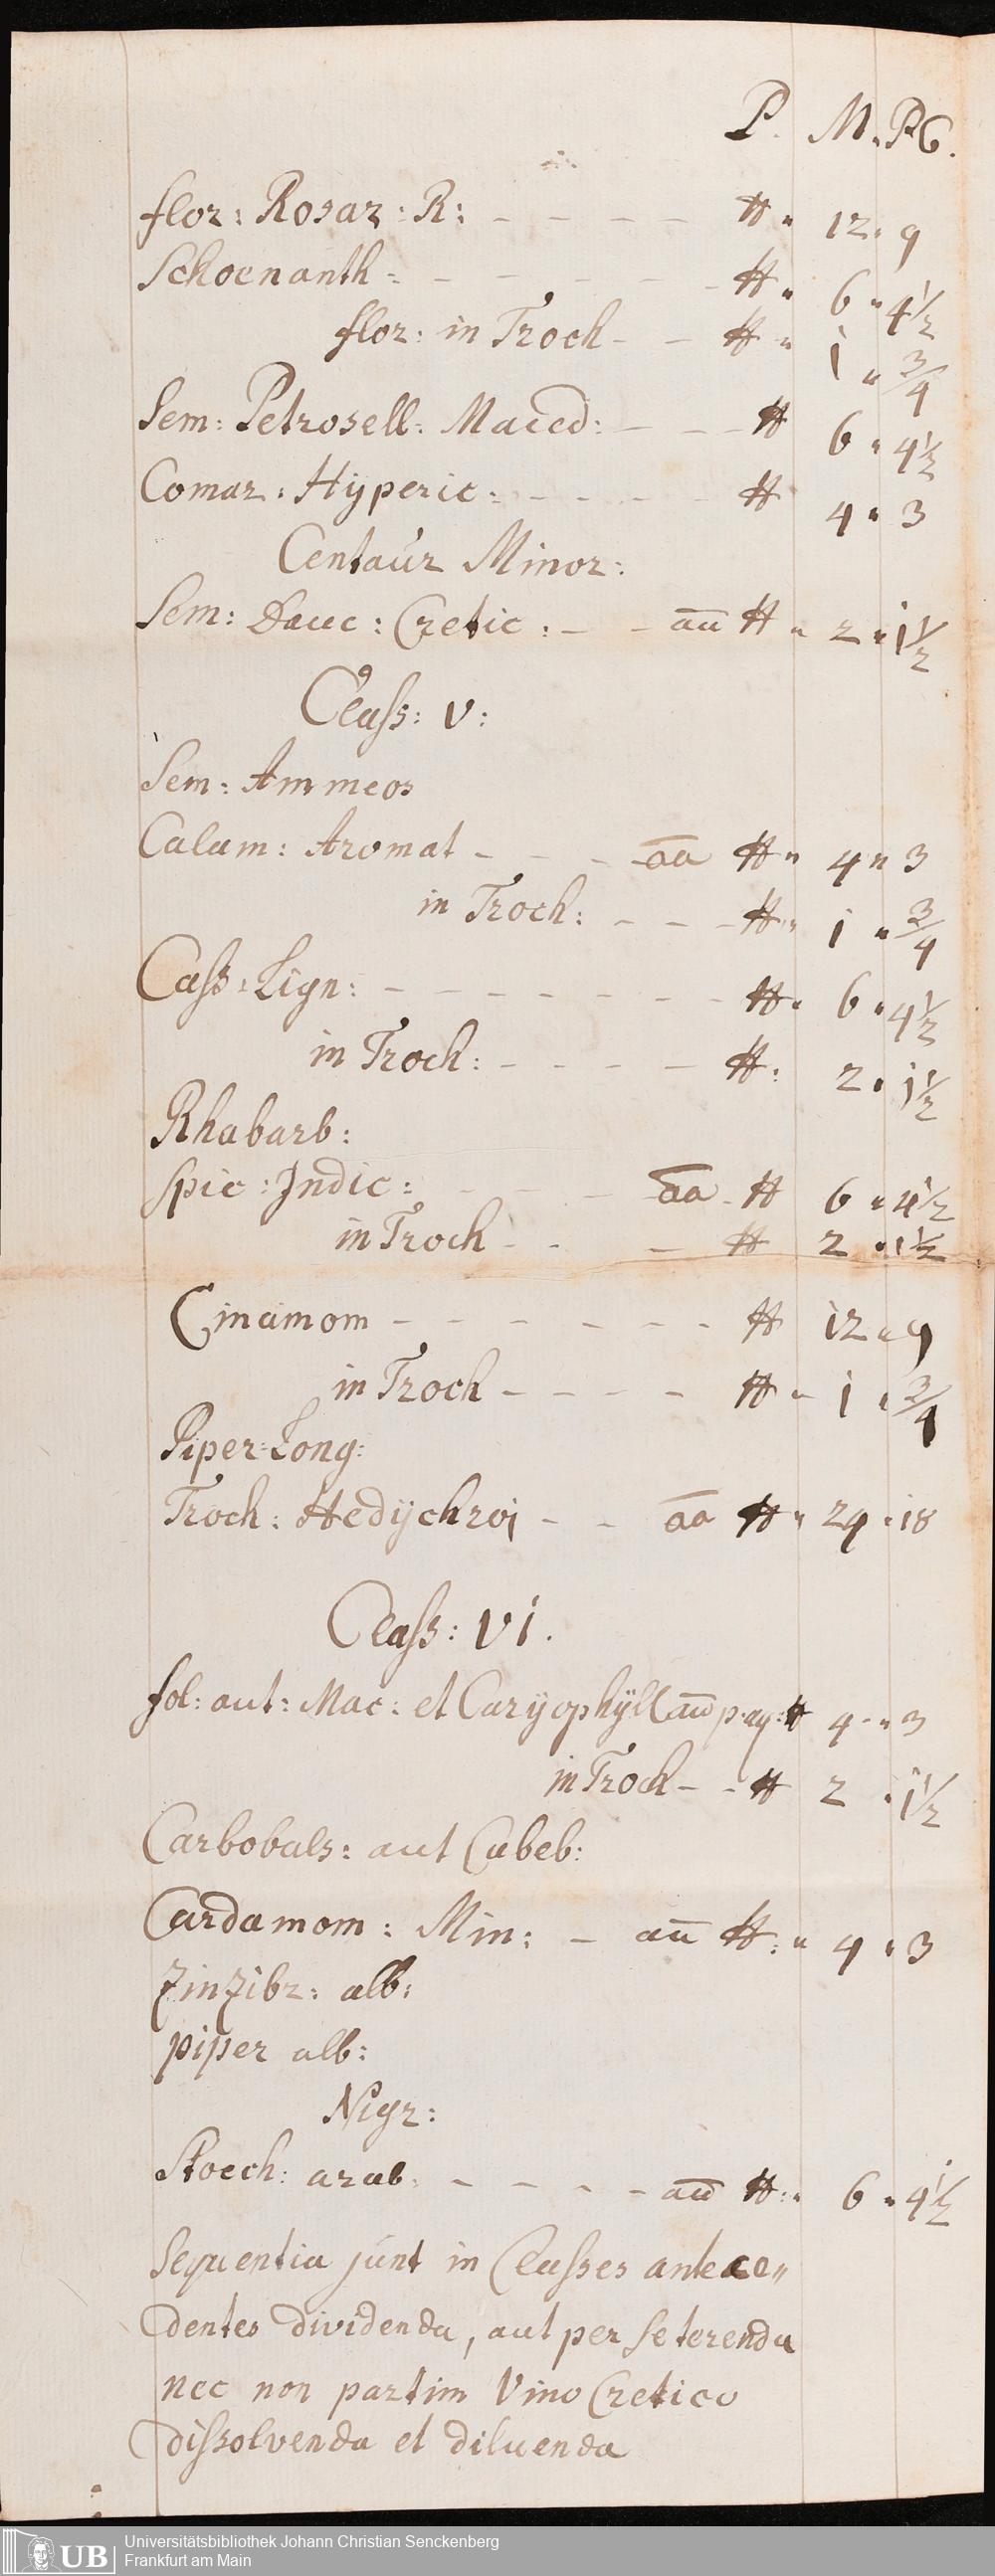 P. M. PG.
flor: Rosar: R: — — — — ℔ „ 12 „ 9
Schoenanth: — — — — — ℔ „ 6 „ 4½
flor: in Troch — — ℔ „ 1 „ ¾
Sem: Petrosell: Maced: — — — ℔ 6 „ 4½
Comar: Hÿperic: — — — — ℔ 4 „ 3
Centaúr Minor:
Sem: Dauc: Cretic: — — au̅ ℔ „ 2 „ 1½
Class: V:
Sem: Ammeos
Calam: Aromat — — — a̅a̅ ℔ „ 4 „ 3
in Troch: — — — ℔ „ 1 „ ¾
Cass: Lign: — — — — — — — ℔ „ 6 „ 4½
in Troch: — — — — ℔: 2 „ 1½
Rhabarb:
Spic: Jndic: — — — a̅a̅ ℔ 6 „ 4½
in Troch — — — ℔ 2 „ 1½
Cinamom — — — — — — ℔ 12 „ 9
in Troch — — — — ℔ „ 1 „ ¾
Piper: Long:
Troch: Hedÿchroj — — a̅a̅ ℔ „ 24 „ 18
Class: VI.
fol: aut: Mac: et Carÿophÿll au̅ ℔ 4 „ 3
in Troch — — ℔ 2 „ 1½
Carbobals: aut Cubeb:
Cardamom: Min: — au̅ ℔: „ 4 „ 3
Zinzibr: alb:
piper alb:
Nigr:
Stoech: arab. — — — — au̅ ℔: „ 6 „ 4½
Sequentia súnt in Classes antece„
dentes dividenda, aut per se terenda
nec non partim Vino Cretico
dissolvenda et diluenda
UB Universitätsbibliothek Johann Christian Senckenberg
Frankfurt am Main